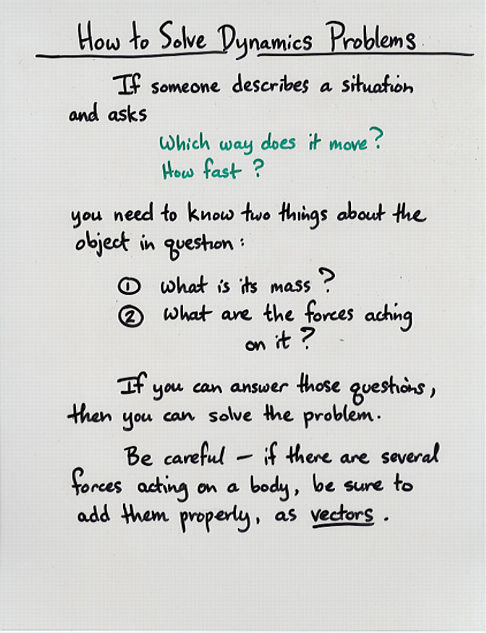 How to Solve Dynamics Problems
If someone describes a situation
and asks
Which way does it move?
How fast?
you need to know two things about the
object in question:
① What is its mass?
② What are the forces acting
on it?
If you can answer those questions,
then you can solve the problem.
Be careful - if there are several
forces acting on a body, be sure to
add them properly, as vectors.